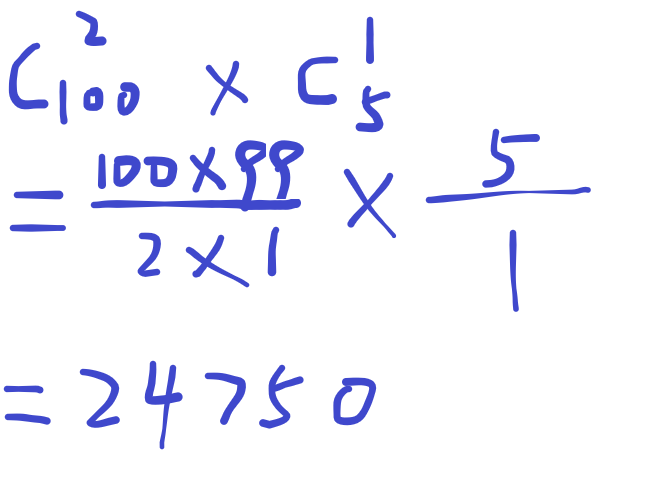 C₁₀₀² × C₅¹
= (100×99)/(2×1) × 5/1
= 24750